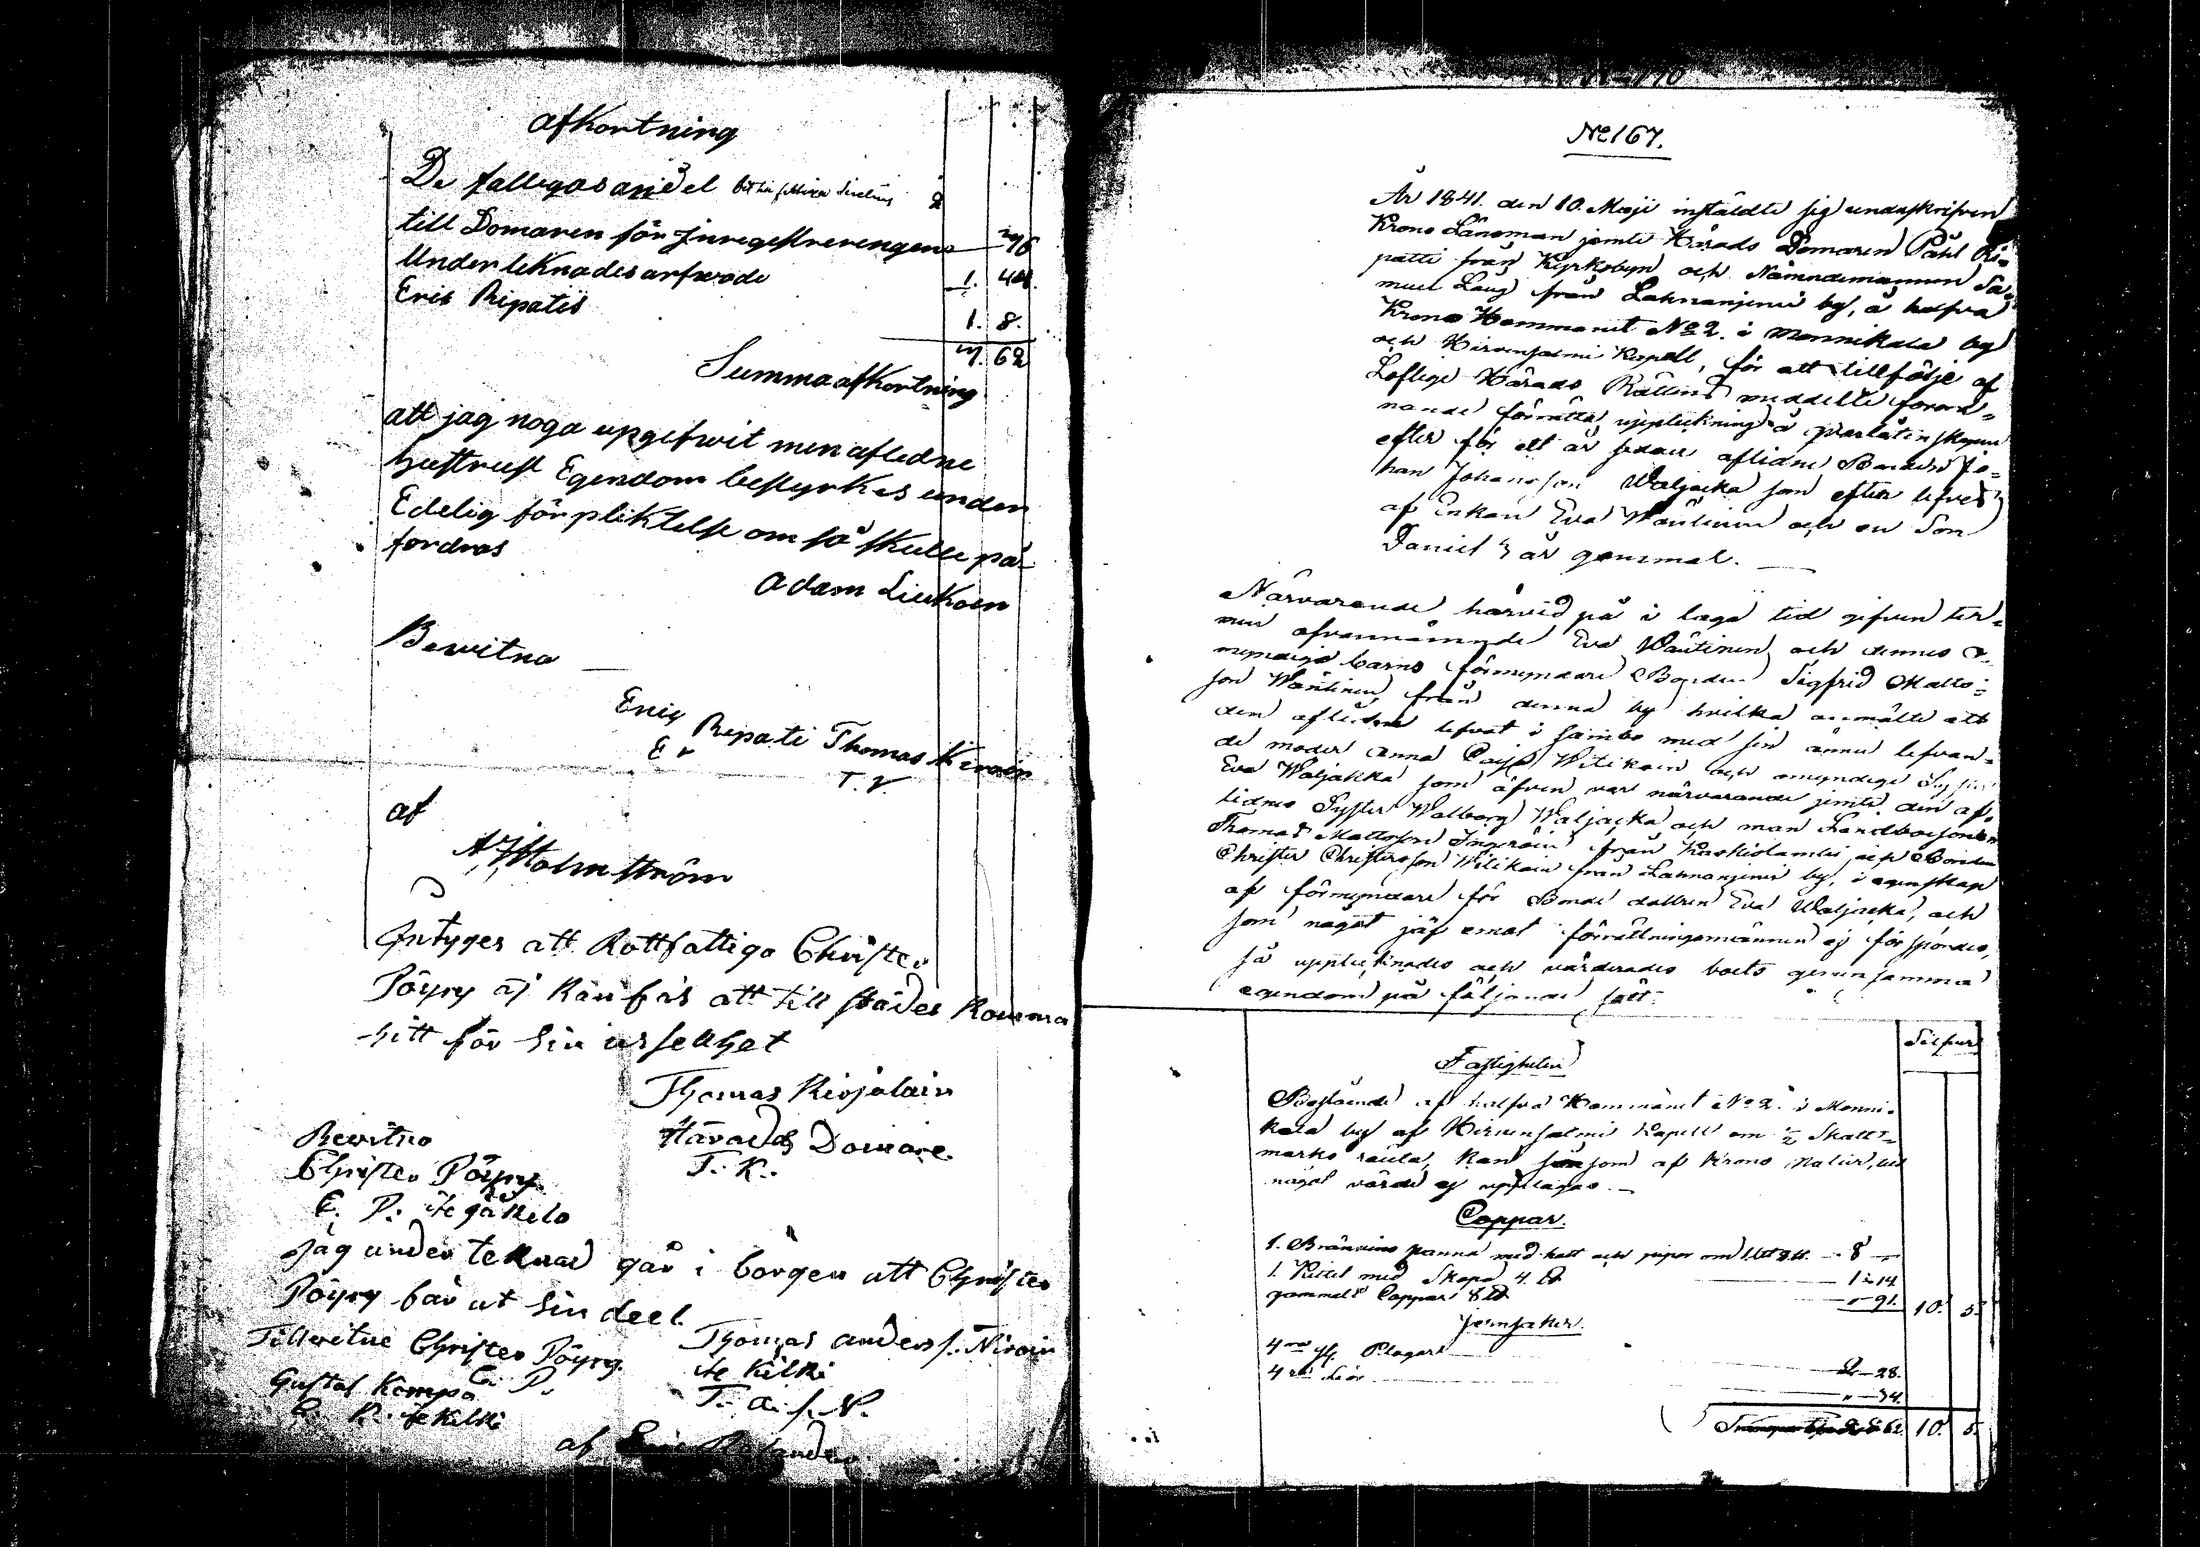 afkortning
De fattigas andel
till Domaren för Inregistreringen 76
Underteknades arfwode 1. 44.
Eric Ripatis 1. 8.
Summa afkortning 62
att jag noga upgifwit min afledne
hustrus Egendom bestyrkes under
Edelig förpliktelse om så skulle på-
fordras
Adam Liukoin
Bewitna
Eric Ripati Thomas
E r T.
af
Holmström
Intyges att Rottfattiga Christer
Pöyry äj kan fås att till städes komma
hitt för sin uselhet
Thomas Kirjalain
Härads Domare
T. K.
Bewitna
Christer Pöyry
C. P.
Jag under teknad går i borgen att Christer
Pöyry får ut sin deel
Thomas anders s. Niroin
Tillwitne Christer Pöyry
C. P.
T. a. s. N.
Gustaf Kompa
af
No 167.
År 1841. den 10. Maji instäldte sig undertkrifven
Krono Länsman jemte Härads Domaren Påhl Ri-
patti från Kyrkobyn och Nämndemannen Sa-
muel Laug från Lahnaniemi by, å halfva
Krono Hemmanet No 2. i Monnikala by
och Hirvensalmi Kapell, för att tillfölje af
Loflige Härads Rättens meddelte förord-
nande förrätta uppteckning å qvarlåtenskapen
efter för ett år sedan aflidne Bonden Jo-
han Johansson Waljacka som efter lefves
af Enkan Eva Wäntinen och en Son
Daniel 3 år gammal.
Närvarande härvid på i laga tid gifven ter-
min ofvannämnde Eva Wäntinen och dennes o-
myndiga barns förmyndare Bonden Sigfrid Matts-
son Wäntinen från denna by hvilka anmälte att
den aflidne lefvat i sambo med sin ännu lefvan-
de moder Anna Caisa Witikain och omyndige Syster
Eva Waljakka som äfven var närvarande jemte den af-
lidnes Syster Walborg Waljacka och man Landbonden
Thomas Mattsson Ingeröin från Kaskiolambi och Bonden
Christer Christersson Witikain från Lahnaniemi by, i egenskap
af förmyndare för Bonde dottren Eva Waljacka, och
som något jäf emot förrättningsmännen ej förspordes,
så upptecknades och värderades boets gemensamma
egendom på följande sätt:
Silfver
Fastigheten
Bestående af halfva Hemmanet No 2. i Monni-
kala by af Hirvensalmi Kapell om 1/2 Skatt-
marks ränta, kan såsom af Krono natur, till
något värde ej upptagas.
Coppar.
1. Brännvins panna med hatt och pipor om 8
1. Kittel med Skopa 4. ℔ 1 14
gammalt Coppar 8 ℔ 91. 10. 5.
Jernsaker.
4 Plogar 2 28.
4 Liar 34.
Transport 2 62 10. 5.